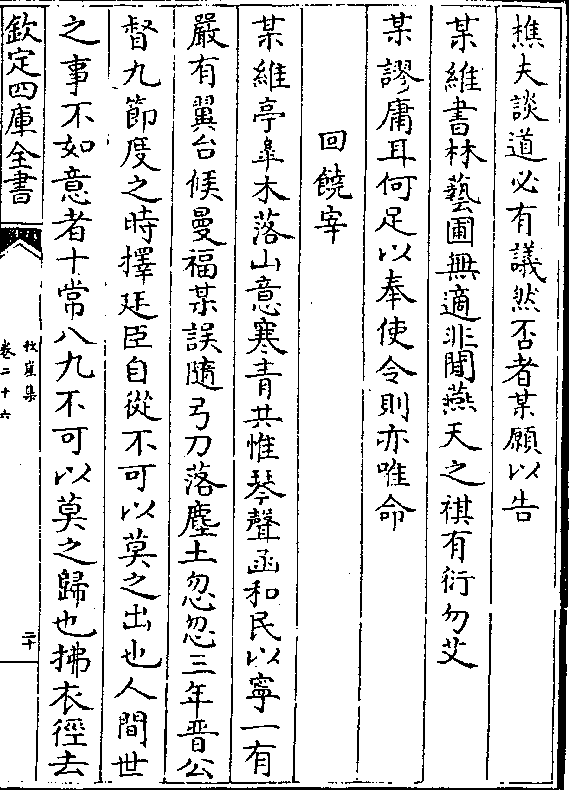 樵夫談道必有議然否者某願以告
某維書林藝圃無適非閒燕天之祺有衍勿艾
某謬庸耳何足以奉使令則亦唯命
回饒宰
某維亭臯木落山意寒青共惟琴聲函和民以寧一有
嚴有翼台候曼福某誤隨弓刀落塵土忽忽三年晋公
督九節度之時擇廷臣自從不可以莫之出也人間世
之事不如意者十常八九不可以莫之歸也拂衣徑去
欽定四庫全書
秋崖集
卷二十六
二十